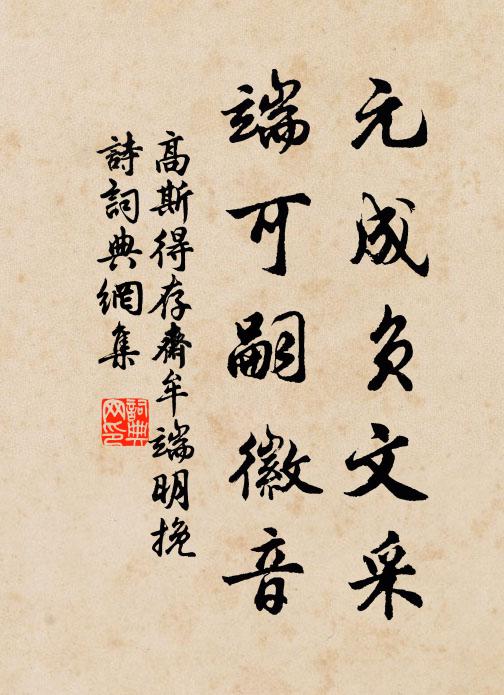 元成負文采
端可嗣徽音
高斯得存齋牟端明挽
詩詞典網集
詞典網印